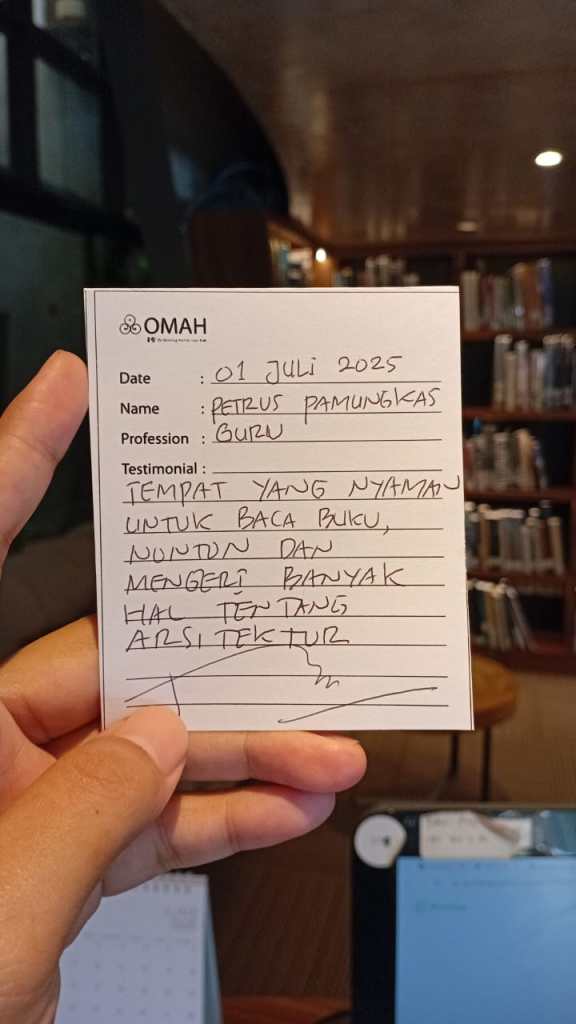 OMAH
Date : 01 JULI 2025
Name : PETRUS PAMUNGKAS
Profession : GURU
Testimonial :
TEMPAT YANG NYAMAN
UNTUK BACA BUKU,
NONTON DAN
MENGERTI BANYAK
HAL TENTANG
ARSITEKTUR